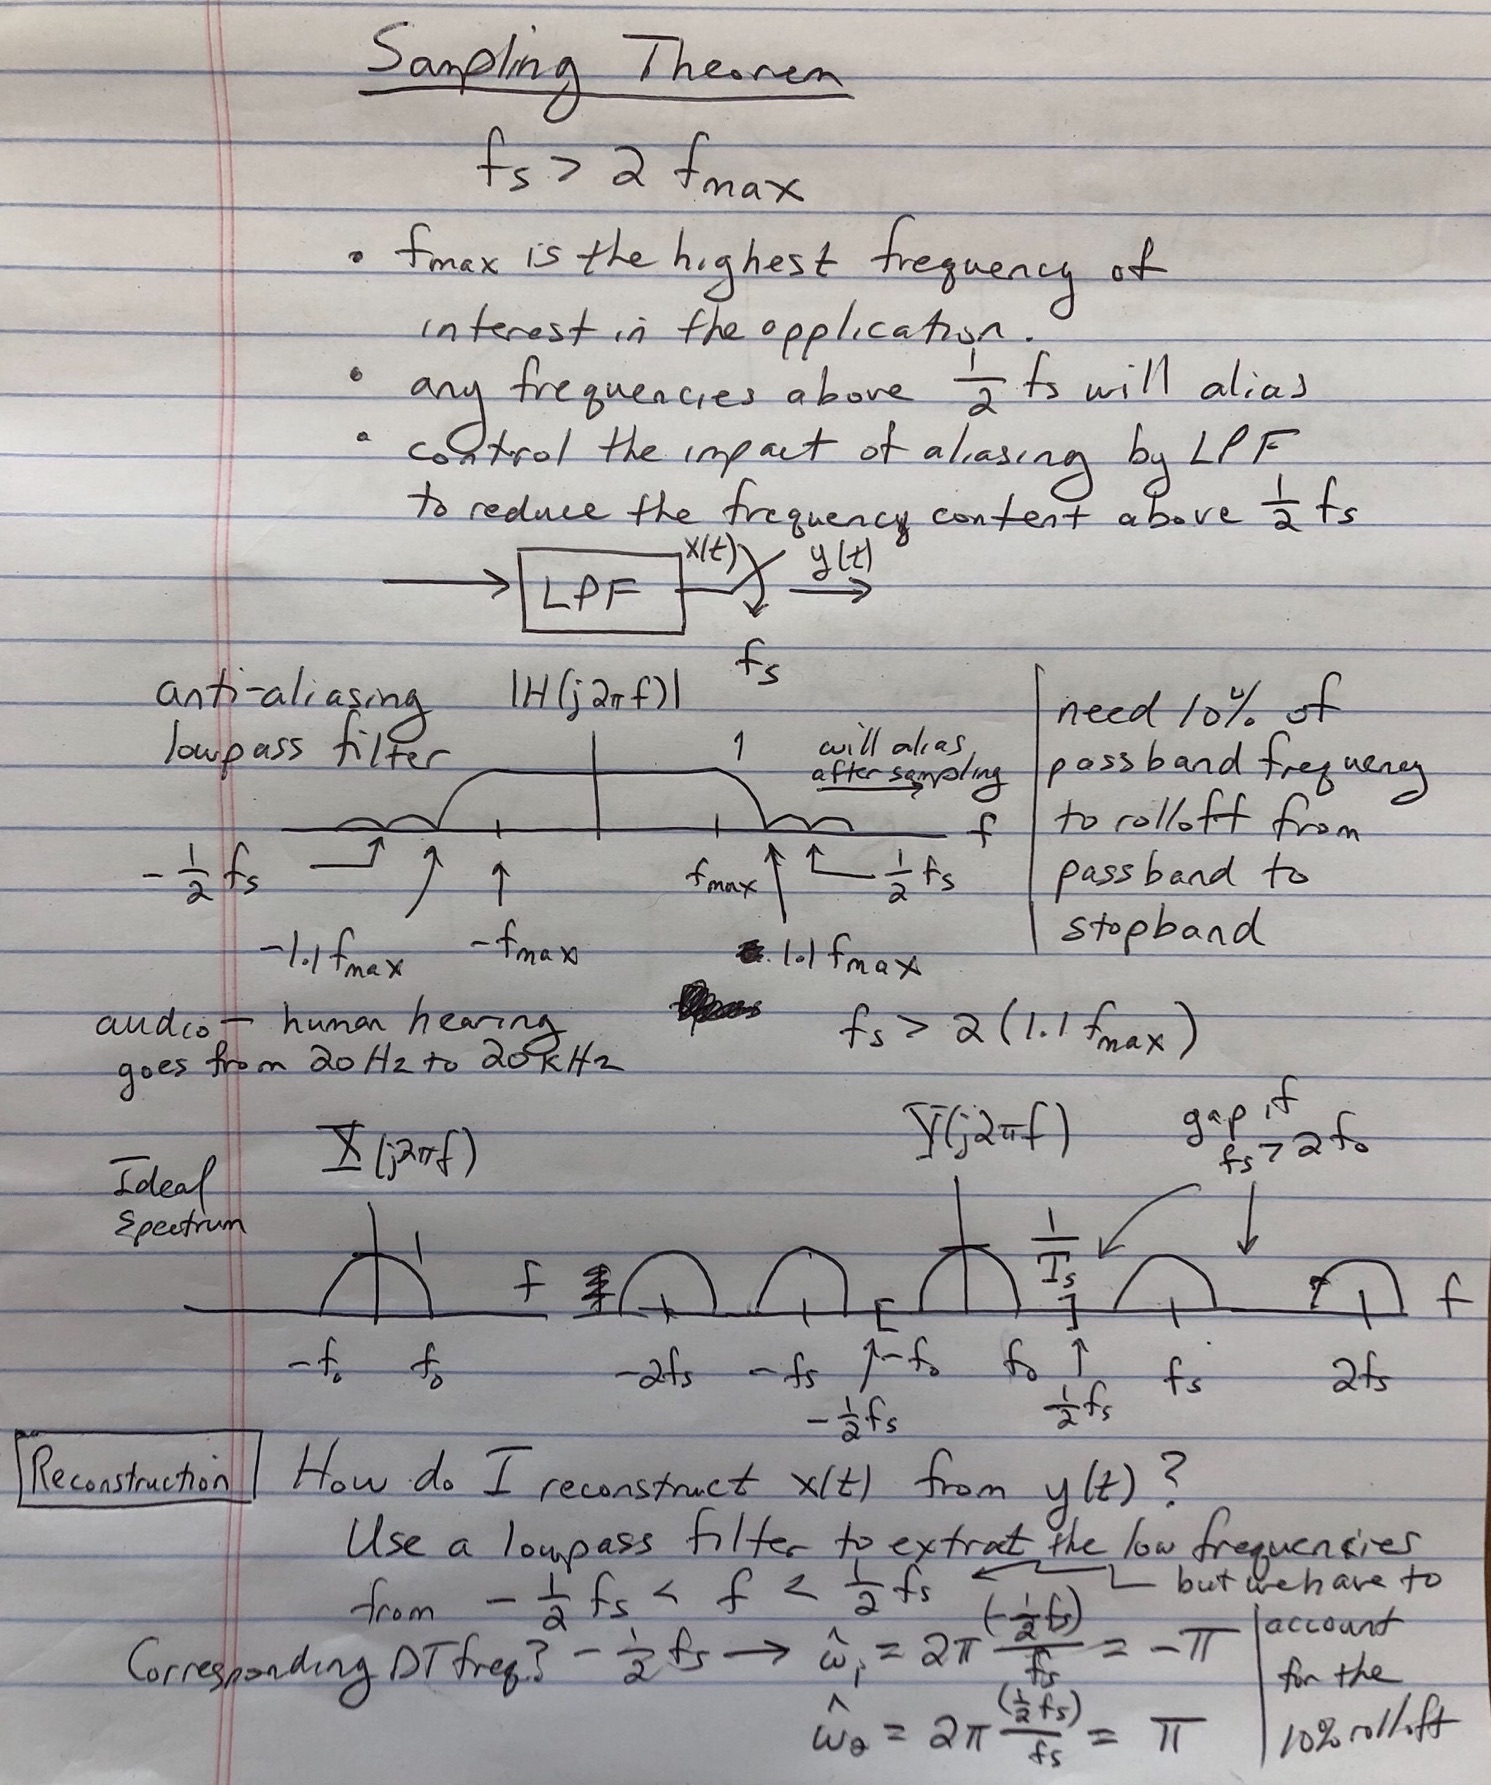 Sampling Theorem
fs > 2 fmax
• fmax is the highest frequency of
interest in the application.
• any frequencies above 1/2 fs will alias
• control the impact of aliasing by LPF
to reduce the frequency content above 1/2 fs
LPF x(t) y(t)
fs
anti-aliasing
lowpass filter
|H(j2πf)|
1
will alias
after sampling
f
-1/2 fs
fmax
1/2 fs
-1.1 fmax
-fmax
1.1 fmax
need 10% of
passband frequency
to rolloff from
passband to
stopband
audio – human hearing
goes from 20 Hz to 20 kHz
fs > 2 (1.1 fmax)
Ideal
Spectrum
X(j2πf)
1
f
-f₀ f₀
Y(j2πf)
gap if
fs > 2 f₀
1/Ts
f
-2fs -fs -f₀ f₀ fs 2fs
-1/2 fs 1/2 fs
Reconstruction
How do I reconstruct x(t) from y(t)?
Use a lowpass filter to extrat the low frequencies
from -1/2 fs < f < 1/2 fs
but we have to
account
for the
10% rolloff
Corresponding DT freq? -1/2 fs → ω̂₁ = 2π (-1/2 fs)/fs = -π
ω̂₂ = 2π (1/2 fs)/fs = π